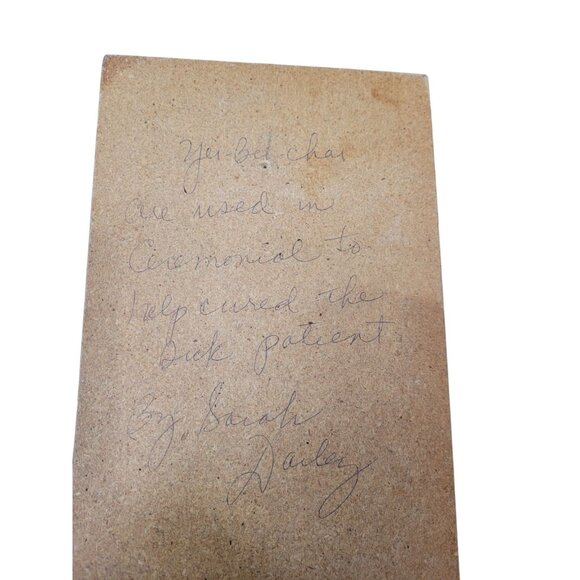 Yei-bet-chai
are used in
Ceremonial to
help cured the
sick patient.
By Sarah
Dailey